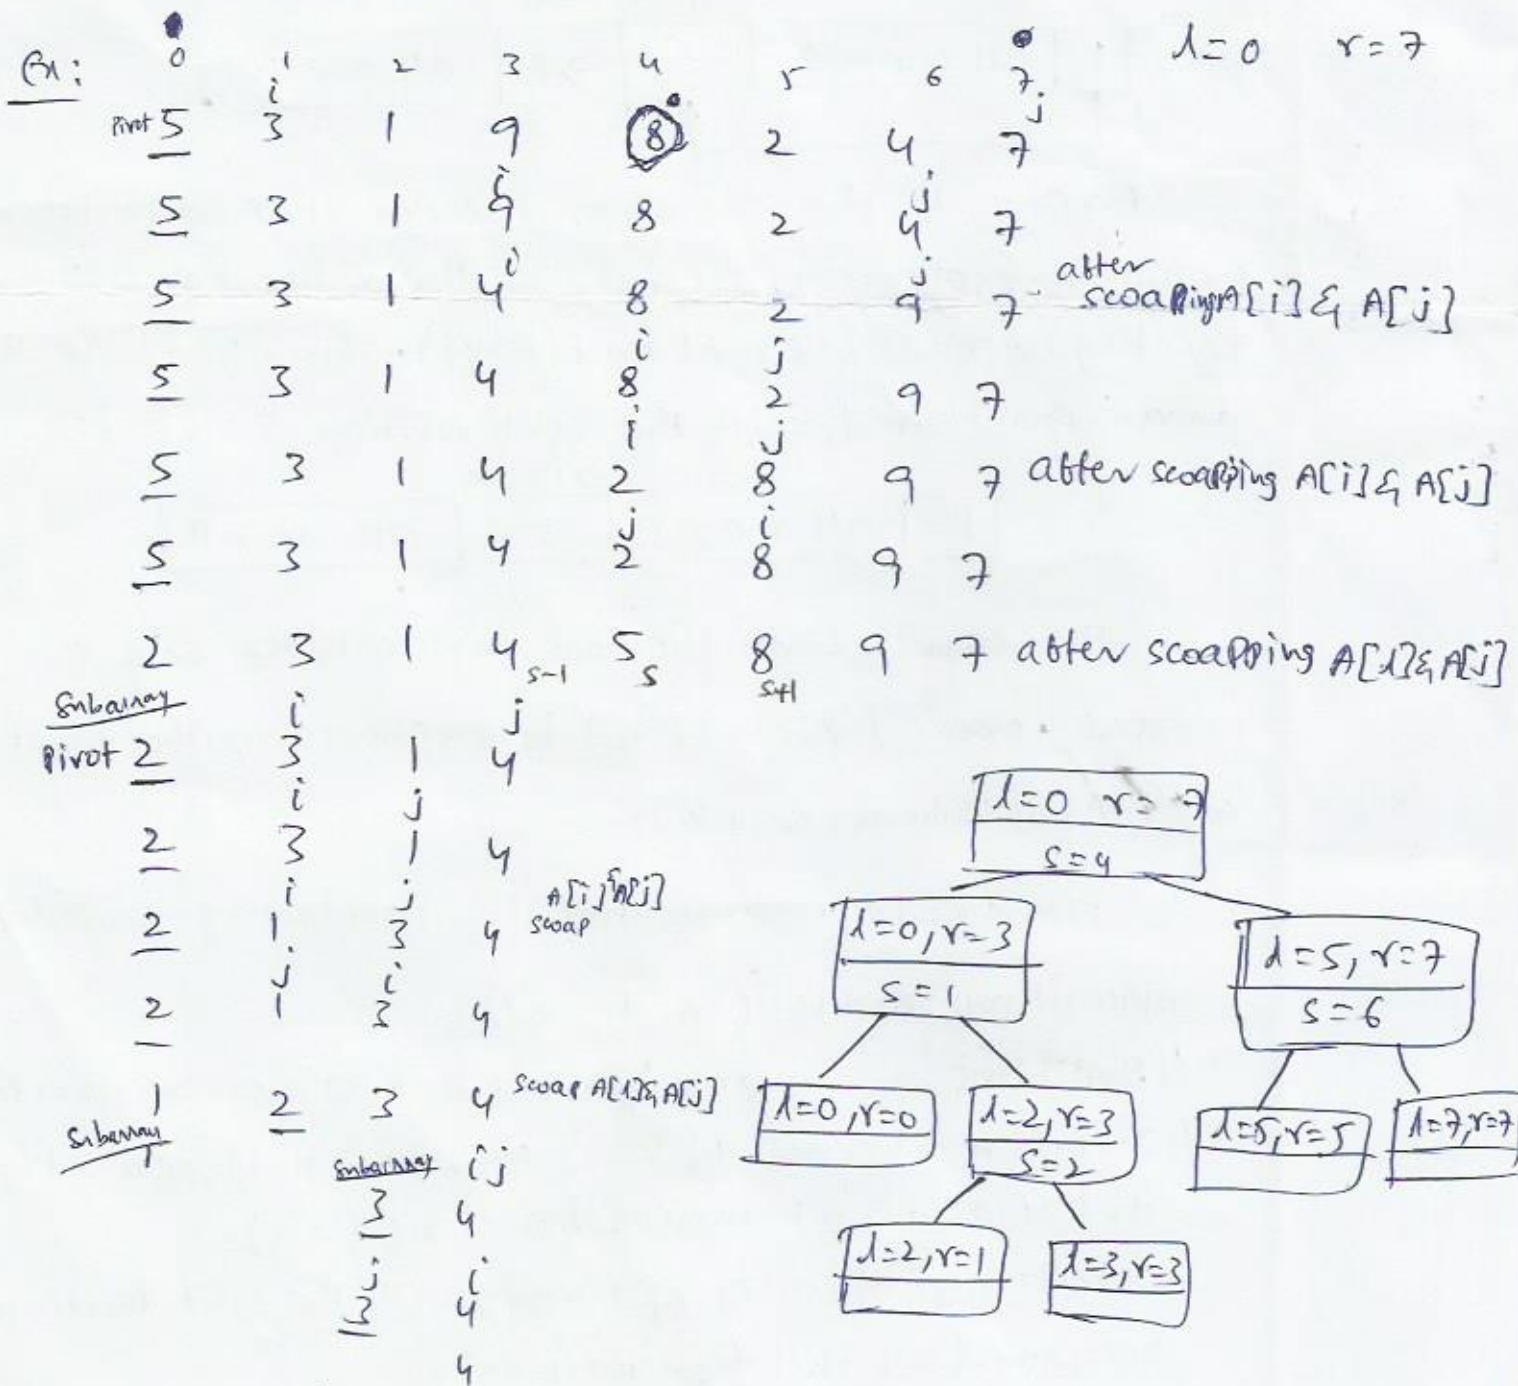 Ex: 0 1 2 3 4 5 6 7 l=0 r=7
i j
Pivot 5 3 1 9 8 2 4 7
i j
5 3 1 9 8 2 4 7
i j
5 3 1 4 8 2 9 7 after swapping A[i] & A[j]
i j
5 3 1 4 8 2 9 7
i j
5 3 1 4 2 8 9 7 after swapping A[i] & A[j]
j i
5 3 1 4 2 8 9 7
2 3 1 4 s-1 5 s 8 s+1 9 7 after swapping A[l] & A[j]
Subarray i j
Pivot 2 3 1 4
i j
2 3 1 4
i j
2 1 3 4 A[i] & A[j] swap
j i
2 1 3 4
1 2 3 4 swap A[l] & A[j]
Subarray
1
Subarray i j
3 4
j i
3 4
4
l=0 r=7
s=4
l=0, r=3
s=1
l=5, r=7
s=6
l=0, r=0
l=2, r=3
s=2
l=5, r=5
l=7, r=7
l=2, r=1
l=3, r=3